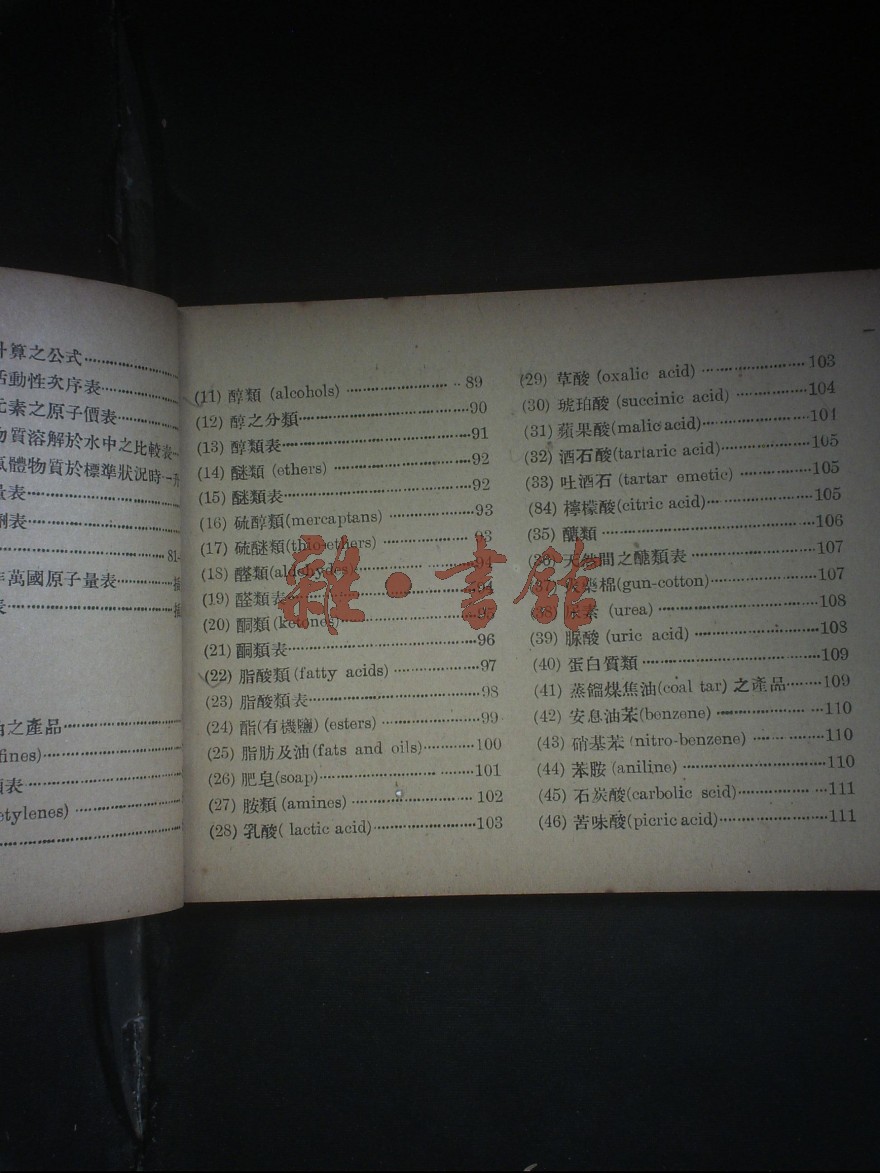 計算之公式
活動性次序表
元素之原子價表
物質溶解於水中之比較表
氣體物質於標準狀況時一升
量表
劑表
81-
年萬國原子量表
表
油之產品
fines)
類表
etylenes)
(11) 醇類 (alcohols) 89
(12) 醇之分類 90
(13) 醇類表 91
(14) 醚類 (ethers) 92
(15) 醚類表 92
(16) 硫醇類(mercaptans) 93
(17) 硫醚類(thio-ethers) 93
(18) 醛類(aldehydes) 94
(19) 醛類表 94
(20) 酮類(ketones)
(21) 酮類表 96
(22) 脂酸類(fatty acids) 97
(23) 脂酸類表 98
(24) 酯(有機鹽) (esters) 99
(25) 脂肪及油(fats and oils) 100
(26) 肥皂(soap) 101
(27) 胺類 (amines) 102
(28) 乳酸( lactic acid) 103
(29) 草酸 (oxalic acid) 103
(30) 琥珀酸 (succinic acid) 104
(31) 蘋果酸(malic acid) 104
(32) 酒石酸(tartaric acid) 105
(33) 吐酒石 (tartar emetic) 105
(84) 檸檬酸(citric acid) 105
(35) 醣類 106
(36) 天然間之醣類表 107
(37) 火藥棉(gun-cotton) 107
(38) 尿素 (urea) 108
(39) 脲酸 (uric acid) 108
(40) 蛋白質類 109
(41) 蒸餾煤焦油(coal tar) 之產品 109
(42) 安息油苯(benzene) 110
(43) 硝基苯 (nitro-benzene) 110
(44) 苯胺 (aniline) 110
(45) 石炭酸(carbolic scid) 111
(46) 苦味酸(picric acid) 111
雜·書館